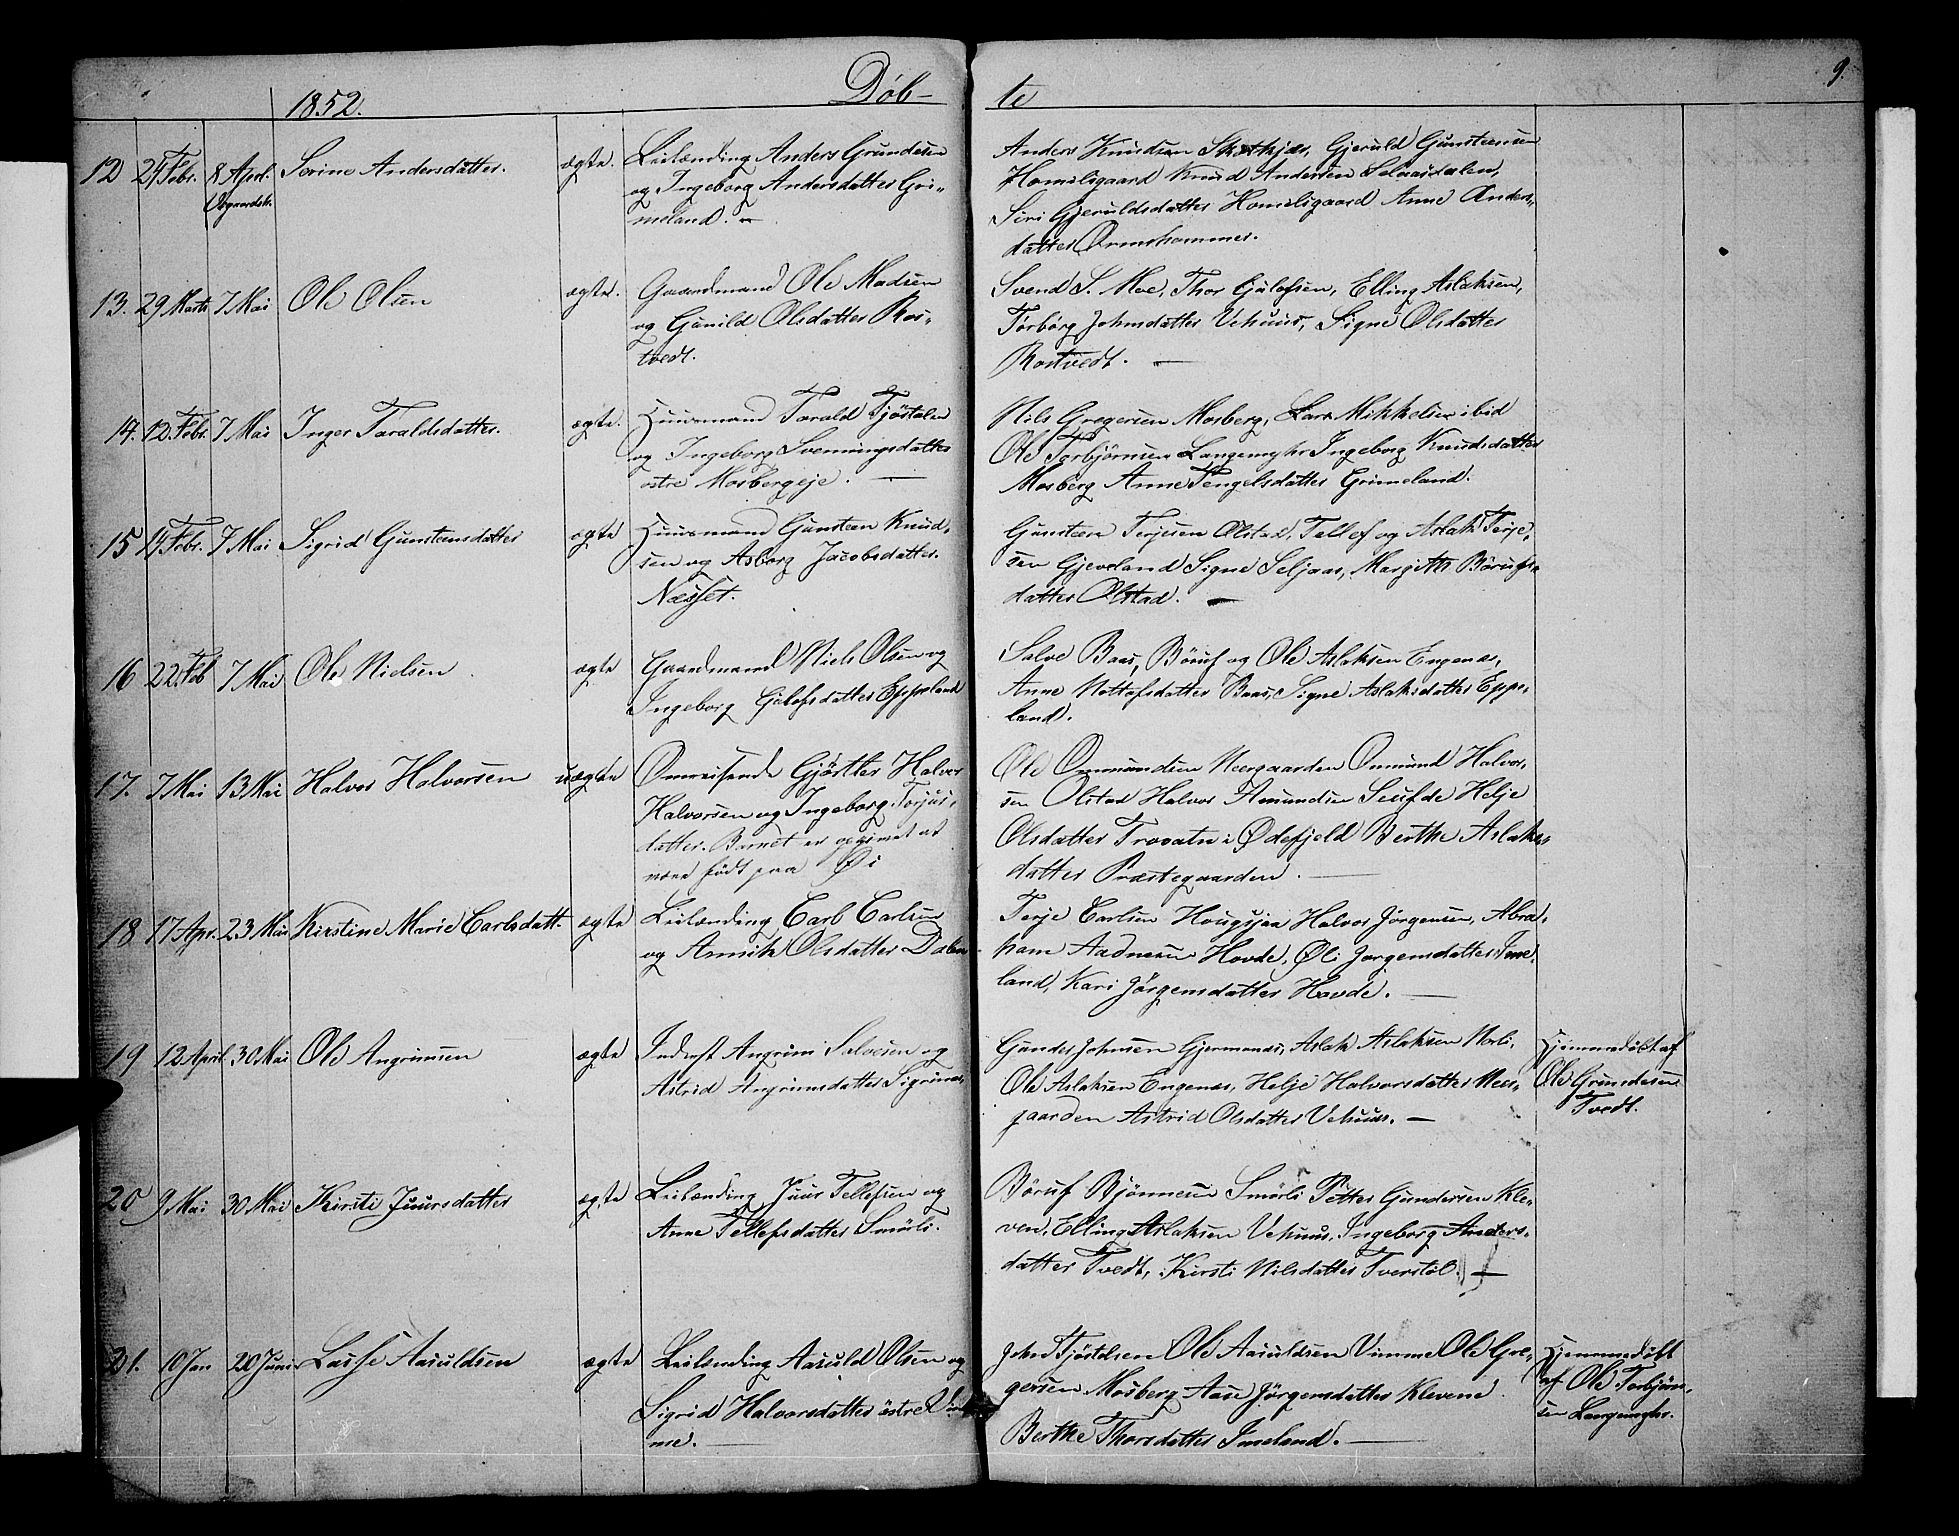 1852.
Døb-
te
9.
12 24 Febr. 8 Apr. Sorine Andersdatter. ægte. Leilænding Anders Grundesen
og Ingeborg Andersdatter Gri-
meland. —
Anders Knudsen Gjeruld Gunstensen
Homelsgaard Knud Andersen
Siri Gjeruldsdatter Homelsgaard Anne Anders-
datter Ormshammer.
13. 29 Marts 7 Mai Ole Olsen ægte. Gaardmand Ole Madsen
og Gunild Olsdatter Ros-
tvedt.
Svend S. Moe, Thor Gjulofsen, Elling Aslaksen,
Torborg Johnsdatter Vehuus, Signe Olsdatter
Rostvedt. —
14. 12 Febr. 7 Mai Inger Taraldsdatter. ægte. Huusmand Tarald Tjøstelsen
og Ingeborg Svenningsdatter
østre Mosbergeje. —
Nils Gregersen Mosberg, Lars Mikkelsen ibid
Ole Torbjørnsen Langemyhr Ingeborg Knudsdatter
Mosberg Anne Tengelsdatter Grimeland.
15 14 Febr. 7 Mai Sigrid Gunstensdatter ægte Huusmand Gunsten Knud-
sen og Asborg Jacobsdatter.
Næsset.
Gunsten Terjesen Ølstad, Tellef og Aslak Terje-
sen Gjeveland Signe Seljaas, Margethe Børufs-
datter Ølstad. —
16 22. Feb 7 Mai Ole Nielsen ægte Gaardmand Niels Olsen og
Ingeborg Gjulofsdatter Eppeland
Salve Baas, Børuf og Ole Aslaksen Engenæs,
Anne Nottofsdatter Baas, Signe Aslaksdatter Eppe-
land.
17. 7 Mai 13 Mai Halvor Halvorsen uægte Omreisende Gjørtler Halvor
Halvorsen og Ingeborg Torjus-
datter. Barnet er
være født paa
Ole Ommundsen Neergaarden Omund Halvor-
sen Ølstad Halvor Amundsen Seufde Helje
Olsdatter Trovatn i Ødefjeld Berthe Aslaks-
datter Præstegaarden. —
18 17 Apr. 23 Mai Kirstine Marie Carlsdatt. ægte Leilænding Carl Carlsen
og Annik Olsdatter Dalen
Terje Carlsen Hougsjaa Halvor Jørgensen, Abra-
ham Aadnesen Hovde, Øli Jørgensdatter Ime-
land, Kari Jørgensdatter Hovde. —
19 12 April. 30 Mai Ole Angrimsen ægte Inderst Angrim Salvesen og
Astrid Angrimsdatter Sigrinæs.
Gunder Johnsen Gjermonæs, Aslak Aslaksen Norli,
Ole Aslaksen Engenæs, Helje Halvorsdatter Neer-
gaarden Astrid Olsdatter Vehuus. —
Hjemmedøbt af
Ole Grundesen
Tvedt.
20 9 Mai 30 Mai Kirsti Juursdatter ægte Leilænding Juur Tellefsen og
Anne Tellefsdatter Smørli.
Børuf Bjønnesen Smørli Petter Gundersen Kle-
ven, Elling Aslaksen Vehuus, Ingeborg Anders-
datter Tvedt, Kirsti Nilsdatter Tverstøl. —
21. 10 Jan 20 Juni Lasse Aasuldsen ægte Leilænding Aasuld Olsen og
Sigrid Halvorsdatter østre Vim-
me. —
John Tjøstelsen Ole Aasuldsen Vimme Ole Gre-
gersen Mosberg Aase Jørgensdatter Klevene.
Berthe Thorsdatter Imeland. —
Hjemmedøbt
af Ole Torbjørn-
sen Langemyhr.